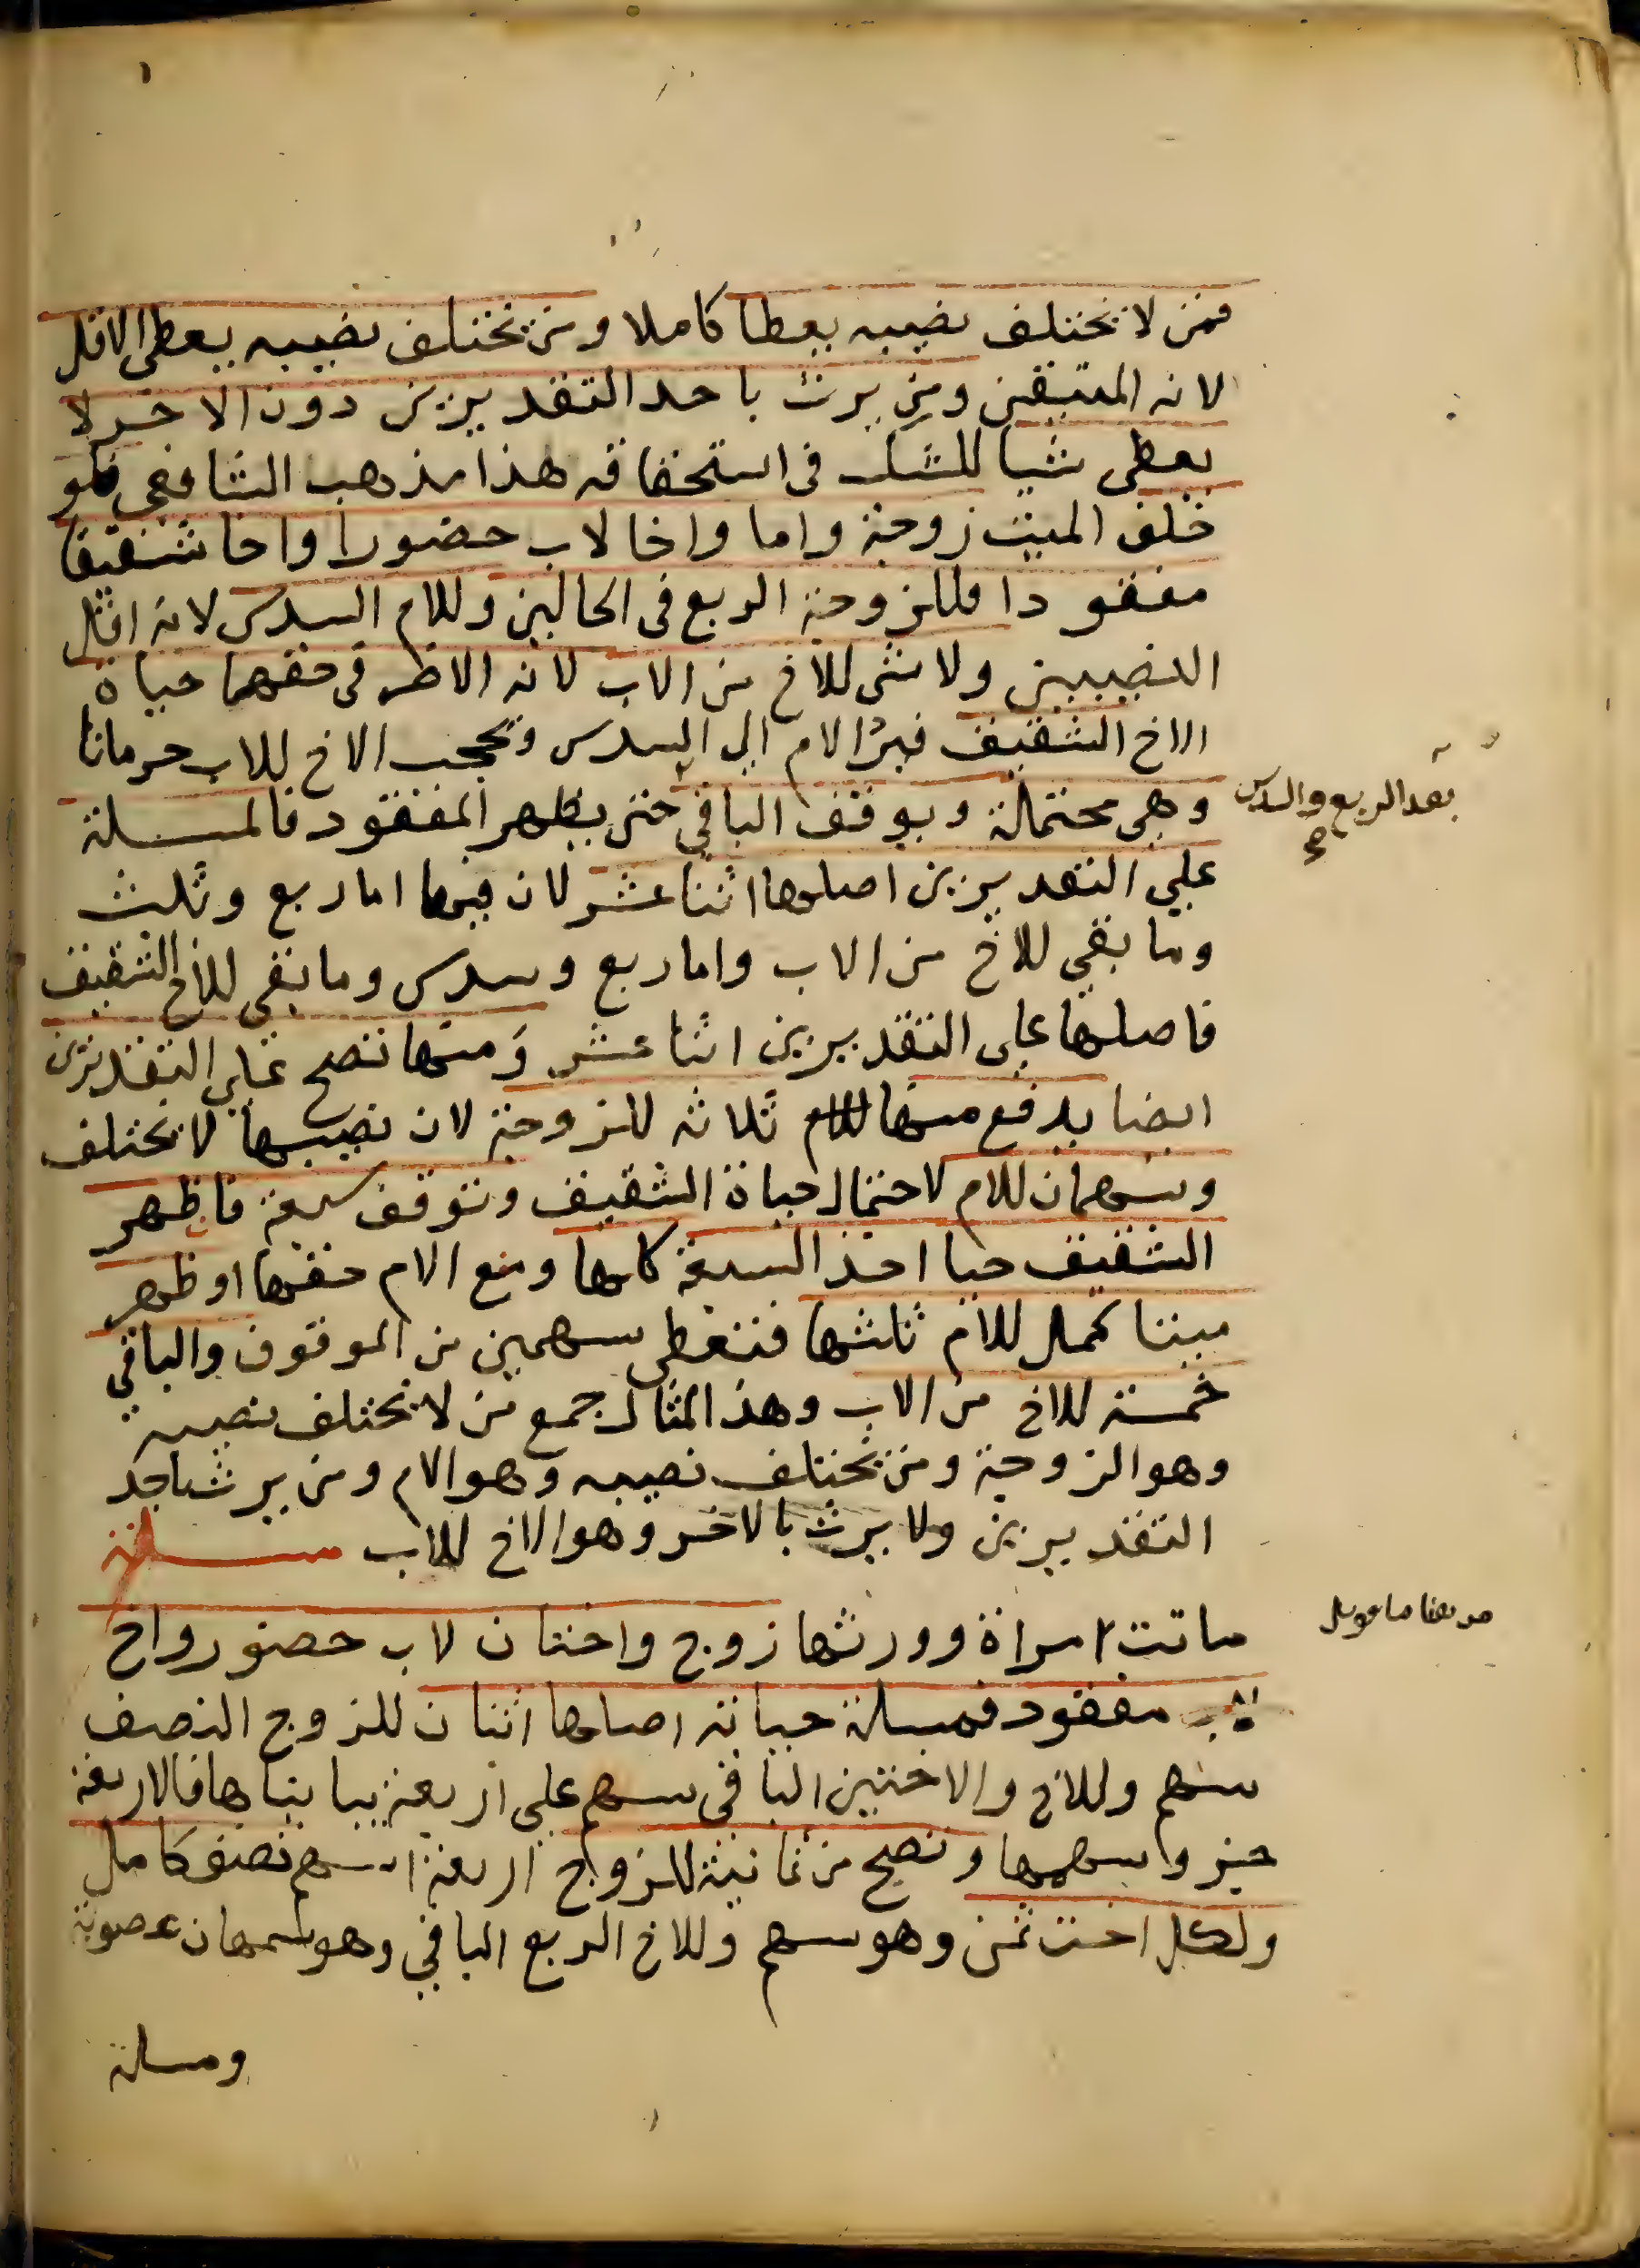 فمن لا يختلف نصيبه يعطا كاملا ومن يختلف نصيبه يعطى الاقل
لانه المتيقن ومن يرث باحد التقديرين دون الاخر لا
يعطى شيا للشك فى استحقاقه هذا مذهب الشافعي فلو
خلف الميت زوجة واما واخا لاب حضورا واخا شقيقا
مفقودا فللزوجة الربع فى الحالين وللام السدس لانه اقل
النصيبين ولا شى للاخ من الاب لانه الاضر فى حقهما حياة
الاخ الشقيق فيرد الام الى السدس ويحجب الاخ للاب حرمانا
وهى محتملة ويوقف الباقي حتى يظهر المفقود فالمسلة
بعد الربع والسدس
على التقديرين اصلها اثنا عشر لان فيها اما ربع وثلث
وما بقي للاخ من الاب واما ربع وسدس وما بقى للاخ الشقيق
فاصلها على التقديرين اثنا عشر ومنها تصح على التقديرين
ايضا يدفع منها ثلاثه للزوجة لان نصيبها لا يختلف
وسهمان للام لاحتمال حياة الشقيق وتوقف سبعة فاظهر
الشقيق حيا اخذ السبعة كلها ومنع الام حقها او ظهر
ميتا كمل للام ثلثها فتعطى سهمين من الموقوف والباقي
خمسة للاخ من الاب وهذ المثال جمع من لا يختلف نصيبه
وهو الزوجة ومن يختلف نصيبه وهو الام ومن يرث باحد
التقديرين ولا يرث بالاخر وهو الاخ للاب مسلة
ماتت امراة وورثها زوج واختان لاب حضور واخ
لاب مفقود فمسلة حياته اصلها اثنان للزوج النصف
سهم وللاخ والاختين الباقى سهم على اربعة يباينها فالاربعة
جزو سهمها وتصح من ثمانية للزوج اربعة اسهم نصف كامل
ولكل اخت ثمن وهو سهم وللاخ الربع الباقي وهو سهمان عصوبة
ومسلة